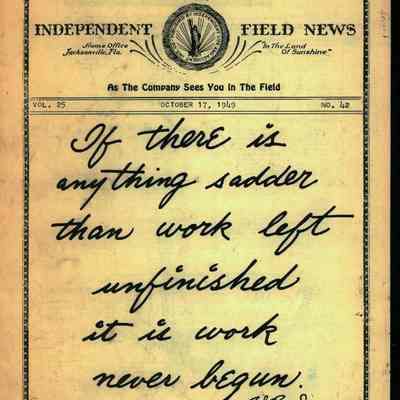 INDEPENDENT FIELD NEWS
Home Office
Jacksonville, Fla.
"In The Land
Of Sunshine"
As The Company Sees You In The Field
VOL. 25 OCTOBER 17, 1949 NO. 42
If there is
anything sadder
than work left
unfinished
it is work
never begun.